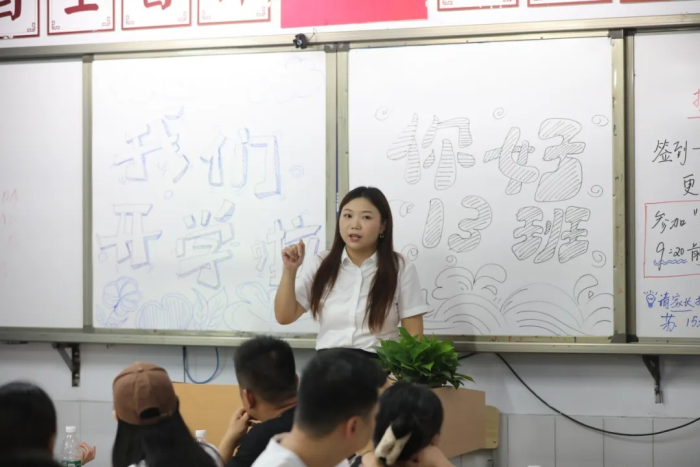 我们
开学啦
你好
13班
签到
更
参加
9:20前
请家长
苏 15